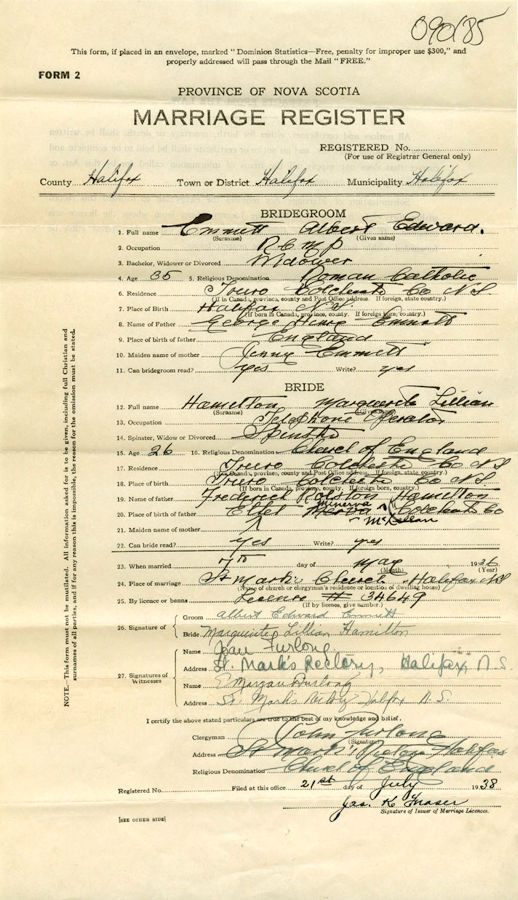 090185
This form, if placed in an envelope, marked "Dominion Statistics—Free, penalty for improper use $300," and
properly addressed will pass through the Mail "FREE."
FORM 2
PROVINCE OF NOVA SCOTIA
MARRIAGE REGISTER
REGISTERED No.
(For use of Registrar General only)
County Halifax Town or District Halifax Municipality Halifax
BRIDEGROOM
1. Full name Emmett Albert Edward.
(Surname) (Given name)
2. Occupation R C M P
3. Bachelor, Widower or Divorced Widower
4. Age 35 5. Religious Denomination Roman Catholic
6. Residence Truro Colchester Co N.S.
(If in Canada, province, county and Post Office address. If foreign, state country.)
7. Place of Birth Halifax N.S.
(If born in Canada, province, county. If foreign born, country.)
8. Name of Father George Henry Emmett
9. Place of birth of father England
10. Maiden name of mother Jenny Emmett
11. Can bridegroom read? yes Write? yes
BRIDE
12. Full name Hamilton Marguerite Lillian
(Surname)
13. Occupation Telephone Operator
14. Spinster, Widow or Divorced Spinster
15. Age 26 16. Religious Denomination Church of England
17. Residence Truro Colchester Co N S
(If in Canada, province, county and Post Office address. If foreign, state country.)
18. Place of birth Truro Colchester Co N S
(If born in Canada, province, county. If foreign born, country.)
19. Name of father Frederick Ralston Hamilton
20. Place of birth of father Minerva Colchester Co
21. Maiden name of mother McLellan
22. Can bride read? yes Write? yes
23. When married day of May 1936
(Month) (Year)
24. Place of marriage St Mark's Church, Halifax NS
(Name of church or clergyman's residence or location of dwelling house)
25. By licence or banns License # 34649
(If by license, give number.)
26. Signature of
Groom Albert Edward Emmett
Bride Marguerite Lillian Hamilton
27. Signatures of Witnesses
Name Jean Furlong
Address St. Mark's Rectory, Halifax, N.S.
Name Furlong
Address St. Marks Rectory Halifax N.S.
I certify the above stated particulars are true to the best of my knowledge and belief.
Clergyman John Furlong
(Signature)
Address St Mark's Rectory Halifax
Religious Denomination Church of England
Registered No. Filed at this office 21st day of July 1938
Jas. R Fraser
Signature of Issuer of Marriage Licences.
[SEE OTHER SIDE]
NOTE.—This form must not be mutilated. All information asked for is to be given, including full Christian and
surnames of all parties, and if for any reason this is impossible, the reason for the omission must be stated.